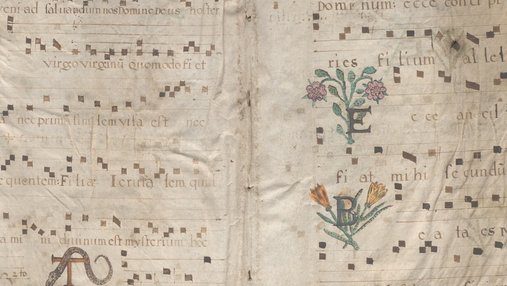 veni ad saluandum nos Domine Deus noster
virgo virginũ quomodo fi et
nec primã similem visa est nec
quentem: Filiæ Ierusa lem quid
mi ni diuinum est mysterium hoc
T
Domi num: ecce con ci pi
ries fi lium al lel
E c ce an cil
fi at mi hi se cundũ
B e a ta es